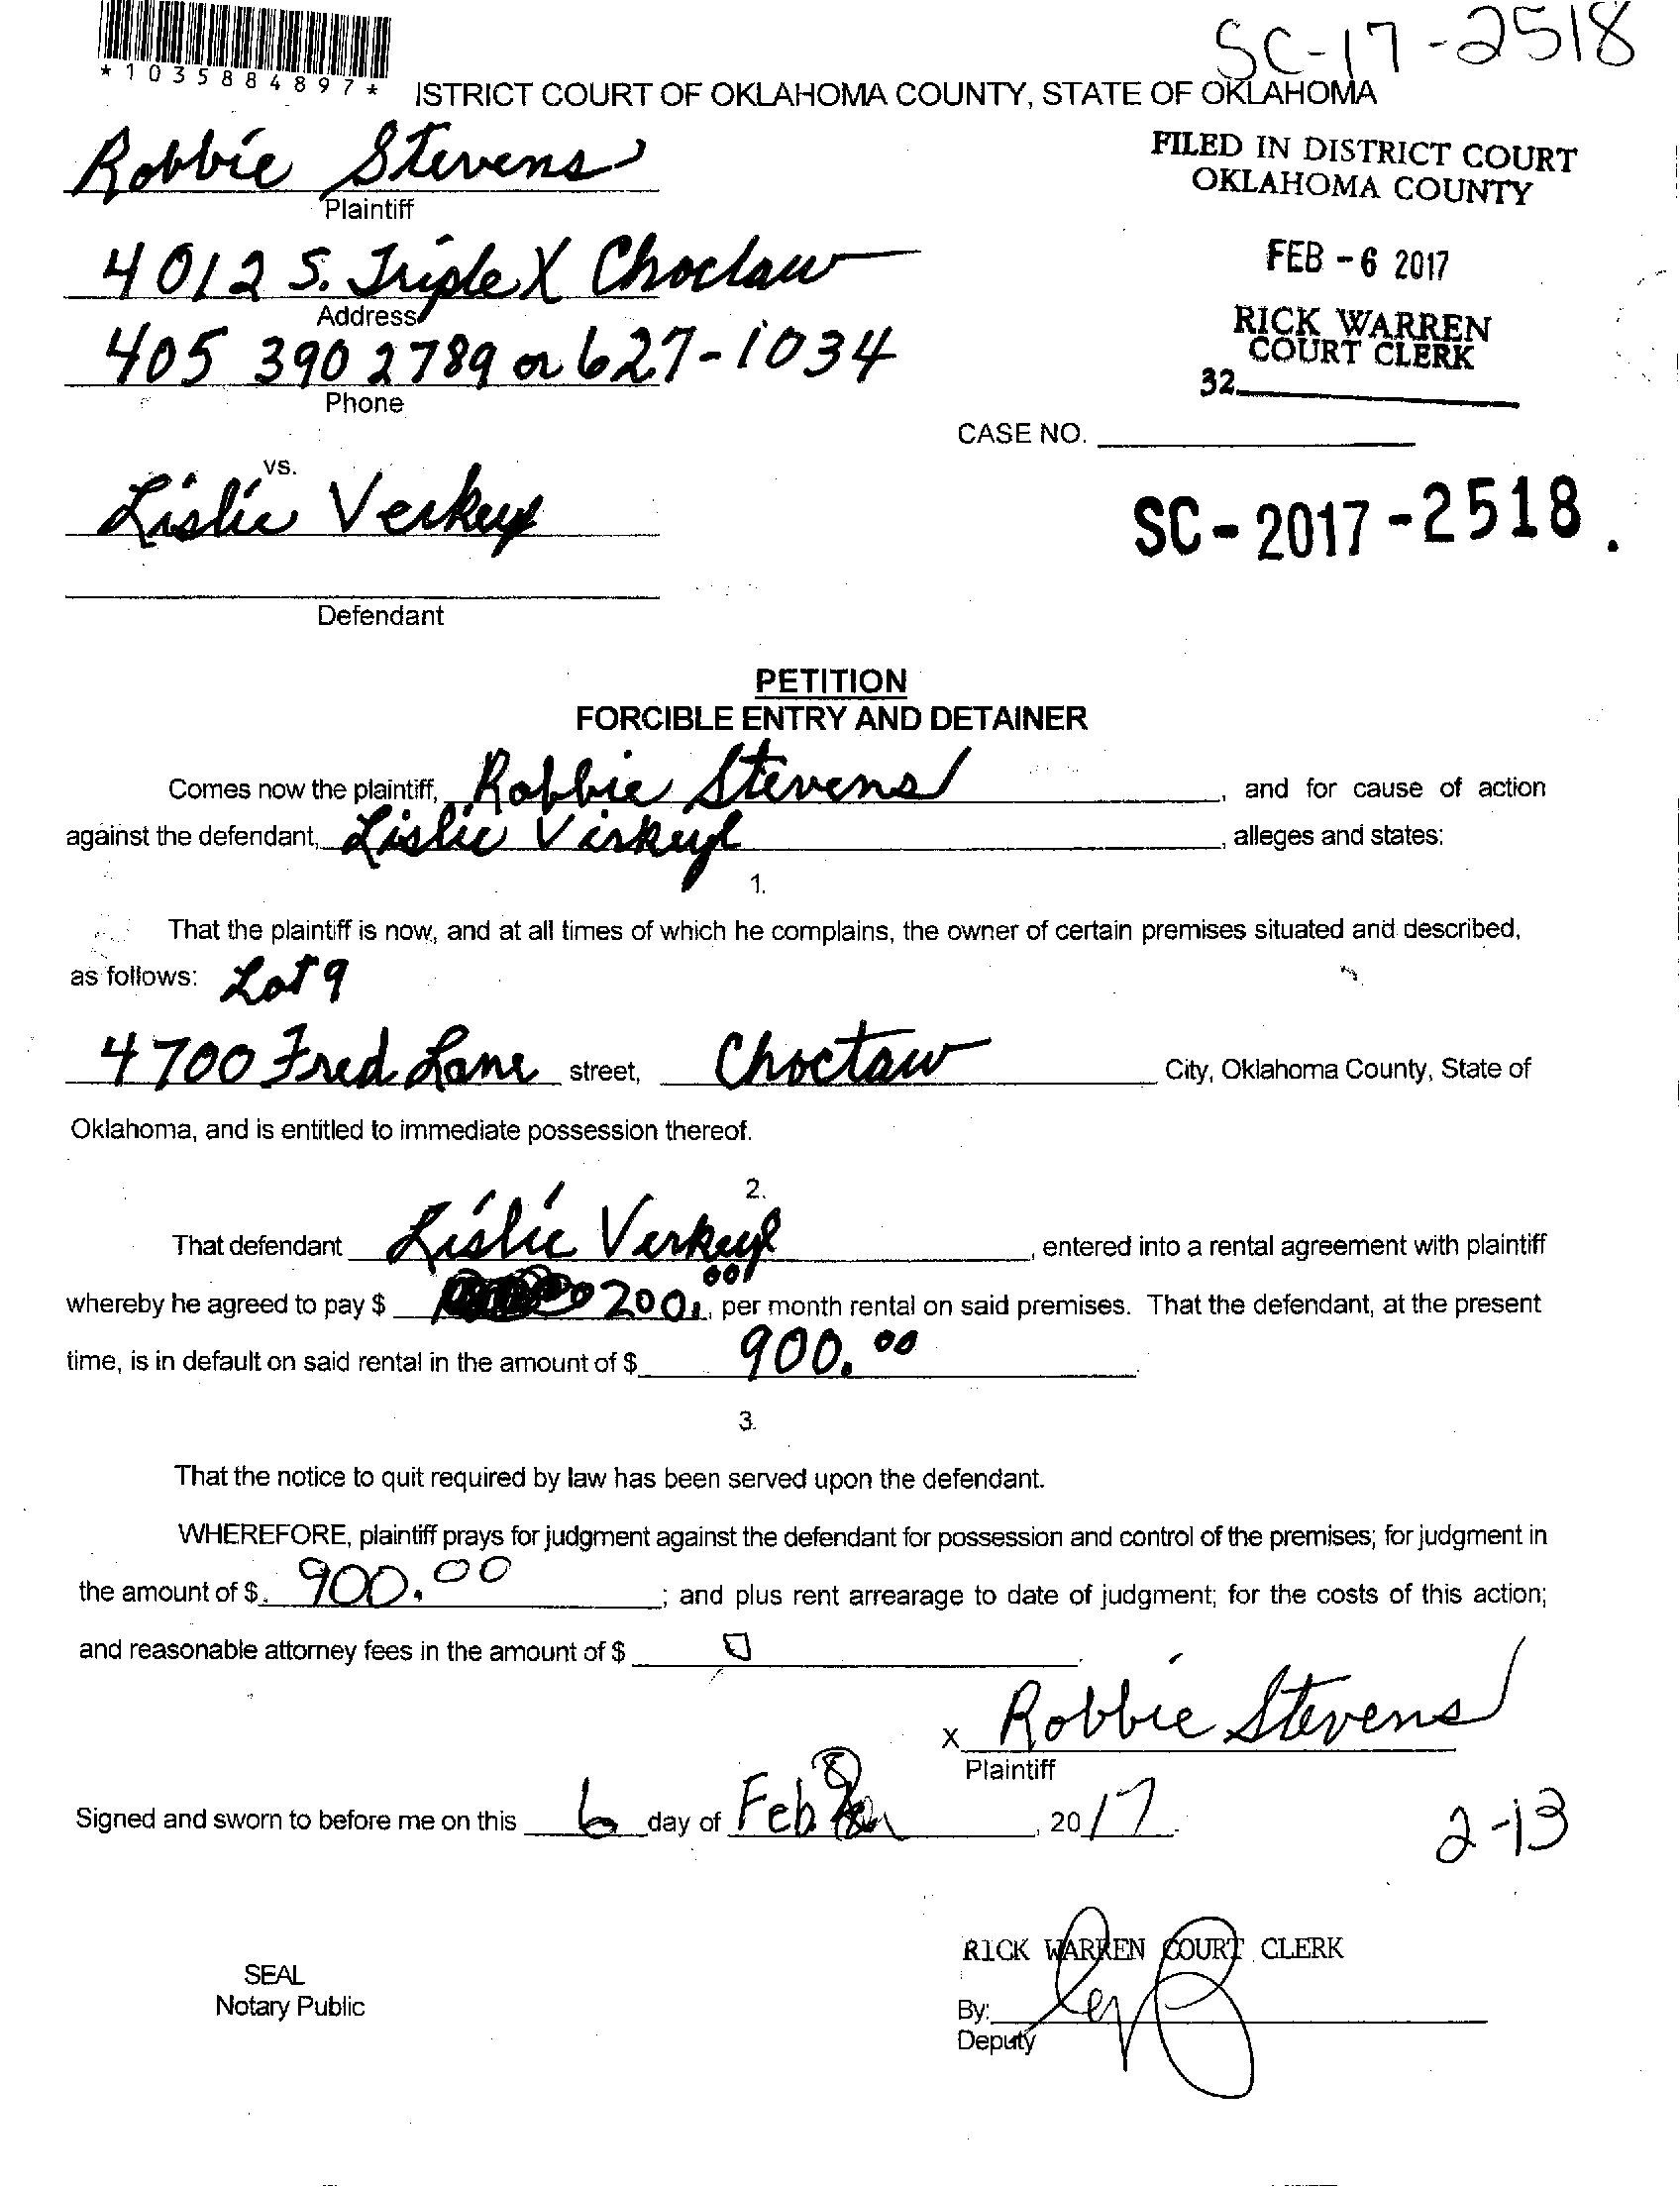 SC-17-2518
*1035884897*
ISTRICT COURT OF OKLAHOMA COUNTY, STATE OF OKLAHOMA
Robbie Stevens
Plaintiff
FILED IN DISTRICT COURT
OKLAHOMA COUNTY
4012 S. Triple X Choctaw
Address
FEB -6 2017
405 390 2789 or 627-1034
Phone
RICK WARREN
COURT CLERK
32
CASE NO.
vs.
Lislie Verkeyl
SC-2017-2518.
Defendant
PETITION
FORCIBLE ENTRY AND DETAINER
Comes now the plaintiff, Robbie Stevens, and for cause of action
against the defendant, Lislie Virkeyl, alleges and states:
1.
That the plaintiff is now, and at all times of which he complains, the owner of certain premises situated and described,
as follows: Lot 9
4700 Fred Lane street, Choctaw City, Oklahoma County, State of
Oklahoma, and is entitled to immediate possession thereof.
2.
That defendant Lislie Verkeyl, entered into a rental agreement with plaintiff
whereby he agreed to pay $ 200.00, per month rental on said premises. That the defendant, at the present
time, is in default on said rental in the amount of $ 900.00.
3.
That the notice to quit required by law has been served upon the defendant.
WHEREFORE, plaintiff prays for judgment against the defendant for possession and control of the premises; for judgment in
the amount of $ 900.00; and plus rent arrearage to date of judgment; for the costs of this action;
and reasonable attorney fees in the amount of $ 0.
x Robbie Stevens
Plaintiff
Signed and sworn to before me on this 6 day of Feb, 2017.
2-13
RICK WARREN COURT CLERK
SEAL
Notary Public
By:
Deputy